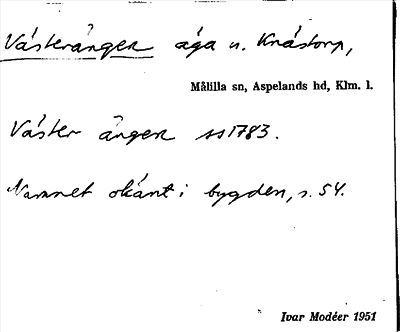 Västerängen äga u. Knåstorp,
Målilla sn, Aspelands hd, Klm. l.
Väster ängen ss 1783.
Namnet okänt i bygden, s. 54.
Ivar Modéer 1951